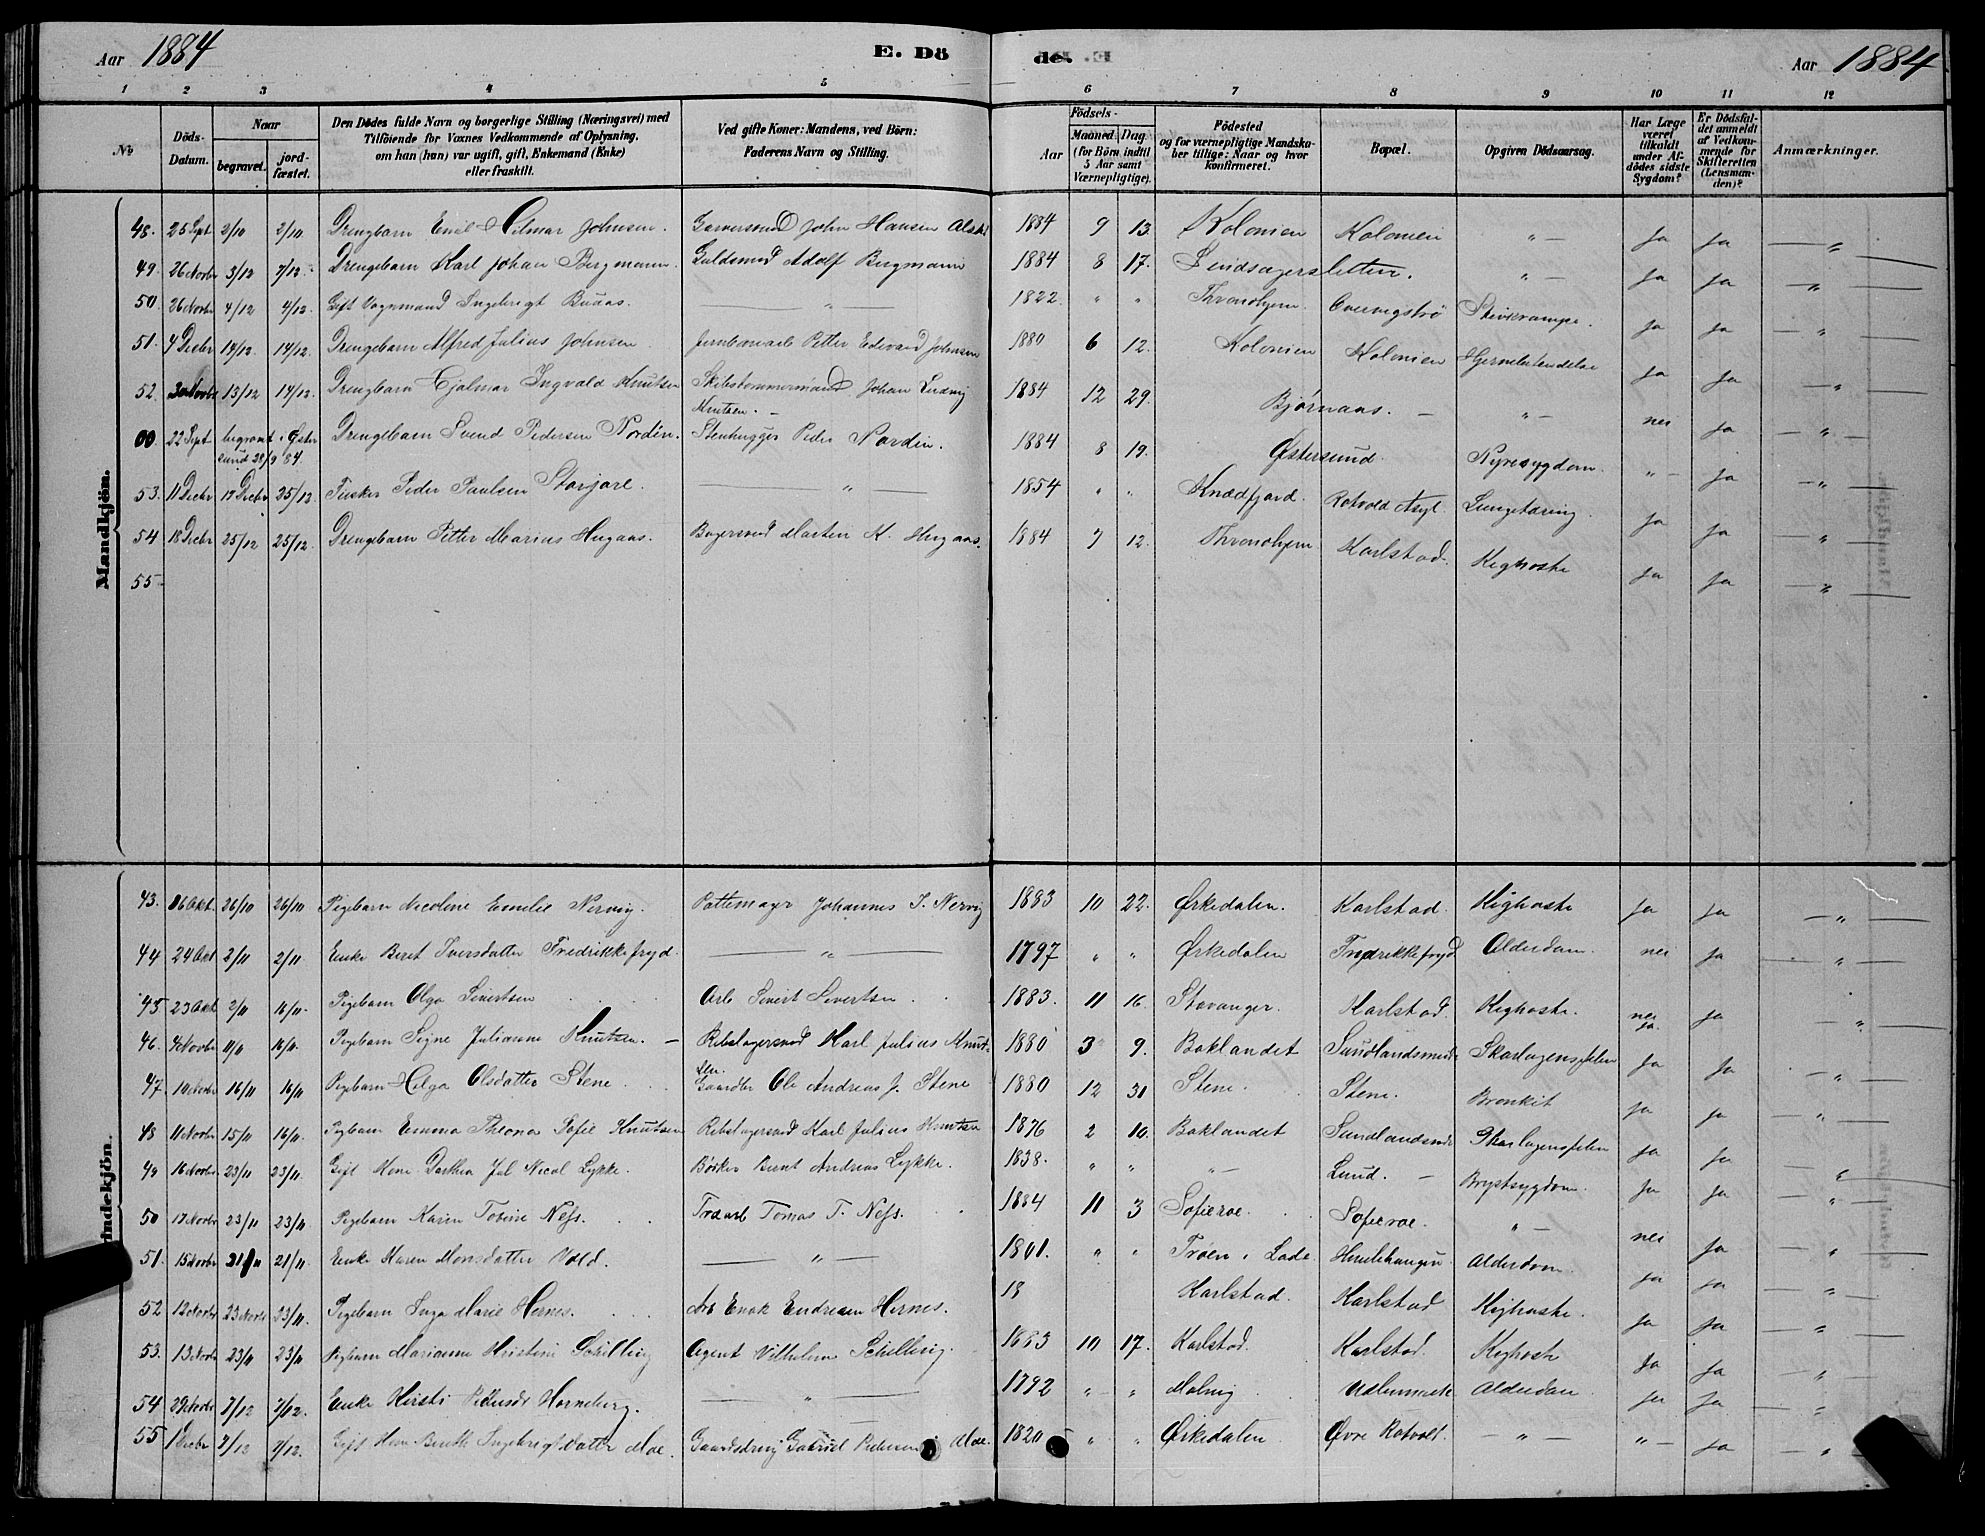 Aar 1884
E. Dö
de.
Aar 1884
1 2 3 4 5 6 7 8 9 10 11 12
No
Döds-Datum.
Naar
begravet.
jordfæstet.
Den Dödes fulde Navn og borgerlige Stilling (Næringsvei) med
Tilföiende for Voxnes Vedkommende af Oplysning,
om han (hun) var ugift, gift, Enkemand (Enke)
eller fraskilt.
Ved gifte Koner: Mandens, ved Børn:
Faderens Navn og Stilling.
Födsels-
Aar
Maaned Dag
(for Börn indtil
5 Aar samt
Værnepligtige).
Födested
og for værnepligtige Mandska-
ber tillige: Naar og hvor
konfirmeret.
Bopæl.
Opgiven Dödsaarsag.
Har Læge
været
tilkaldt
under Af-
dödes sidste
Sygdom?
Er Dödsfal-
det anmeldt
af Vedkom-
mende for
Skifteretten
(Lensman-
den)?
Anmærkninger.
Mandkjön.
48. 25 Sept 2/10 2/10 Drengbarn Emil Hilmar Johnsen. Garversvend John Hansen 1884 9 13. Kolonien Kolonien " — Ja Ja — " —
49. 26 Novbr 3/12 7/12 Drengebarn Karl Johan Bergmann. Guldsmed Adolf Bergmann 1884 8 17. Lindsagersletten. " — Ja Ja — " —
50. 26 Novbr 4/12 4/12 Gift Vognmand Ingebrigt Buaas. — " — 1822. " " Throndhjem Stivkrampe. Ja Ja — " —
51. 4 Decbr 14/12 14/12. Drengebarn Alfred Julius Johnsen Jernbanearb Petter Edevard Johnsen 1880 6 12. Kolonien Kolonien Hjernebetendelse Ja Ja — " —
52. 30 Novbr 13/12 14/12. Drengbarn Hjalmar Ingvald Knutsen Skibstømmermand Johan Ludvig
Knutsen. — 1884 12 29. Bjørnaas. — " — nei Ja — " —
00 22 Sept begravet i Øster
sund 28/9 84. Drengebarn Svend Pedersen Nordin. Stenhugger Peder Nordin. 1884 8 19. Østersund. Nyresygdom. " — Ja — " —
53. 11 Decbr 17 Decbr 25/12 Fisker Peder Paulsen Storjore. — " — 1854 " " Rotvold Asyl. Lungetæring. Ja Ja — " —
54 18 Decbr 25/12 25/12. Drengebarn Petter Marius Hugaas. Bagersvend Morten K. Hugaas. 1884 7 12. Throndhjem Karlstad. Kighoste Ja Ja — " —
55
43. 26/10 26/10 Pigebarn Nicoline Emilie Nervig. Pottemager Johannes J. Nervig 1883 10 22. Ørkedalen. Karlstad. Kighoste Ja Ja — " —
44 24 Okt 2/11 2/11. Enke Beret Iversdatter Fredrikkefryd. — " — 1797 " " Ørkedalen Fredrikkefryd Alderdom. nei Ja — " —
45 23 Okt 2/11 16/11. Pigebarn Olga Sivertsen Arb Sivert Sivertsen 1883. 11 16. Stavanger. Karlstad. Kighoste. nei
Ja. Ja — " —
46. 4 Novbr 11/11 16/11. Pigebarn Signe Julianne Knutsen. — Rebslagersvend Karl Julius Knud-
sen. 1880 3 9. Baklandet Skarlagensfeber Ja Ja — " —
47. 10 Novbr 16/11 16/11 Pigebarn Helga Olsdatter Stene. Gaardbr Ole Andreas J. Stene 1880 12 31 Stene. Stene. Bronkit Ja Ja — " —
48 11 Novbr 15/11 16/11. Pigebarn Emma Theona Sofie Knutsen Rebslagersvend Karl Julius Knutsen 1876 2 10. Baklandet Skarlagensfeber Ja Ja
49 16 Novbr 23/11 23/11. Gift Kone Dorthea Jul Nicol Lykke. Bødker Bernt Andreas Lykke. 1838. " " " — Lund. — Brystsygdom. Ja Ja "
50 17 Novbr 23/11 23/11. Pigebarn Karen Tobine Næss. Tomas T. Næss. 1884 11 3 Sofieroe. Sofieroe. " — nei Ja — " —
51. 15 Novbr 21/11 21/11. Enke Karen Monsdatter Vold. — " — 1801. " " Trøen, Lade. Alderdom. Ja Ja — " —
52 12 Novbr 23 Novbr 23/11. Pigebarn Inga Marie Hernes. Arb Enok Endresen Hernes. 18 Karlstad. Karlstad Kighoste. Ja Ja — " —
53. 13 Novbr 23/11 23/11 Pigebarn Marianne Kristine Schilling Agent Vilhelm Schilling. 1883 10 17. Karlstad. Karlstad. Kighoste Ja Ja — " —
54 29 Novbr 7/12 7/12. Enke Kirsti Horneberg. — " — 1792 " " Alderdom Ja Ja — " —
55 1 Decbr 7/12 7/12. Gift Kone Ingebrigtsdatter Moe. Gabriel Pedersen Moe. 1820 " " Ørkedalen Øvre Rotvolt. — " — " — Ja — " —